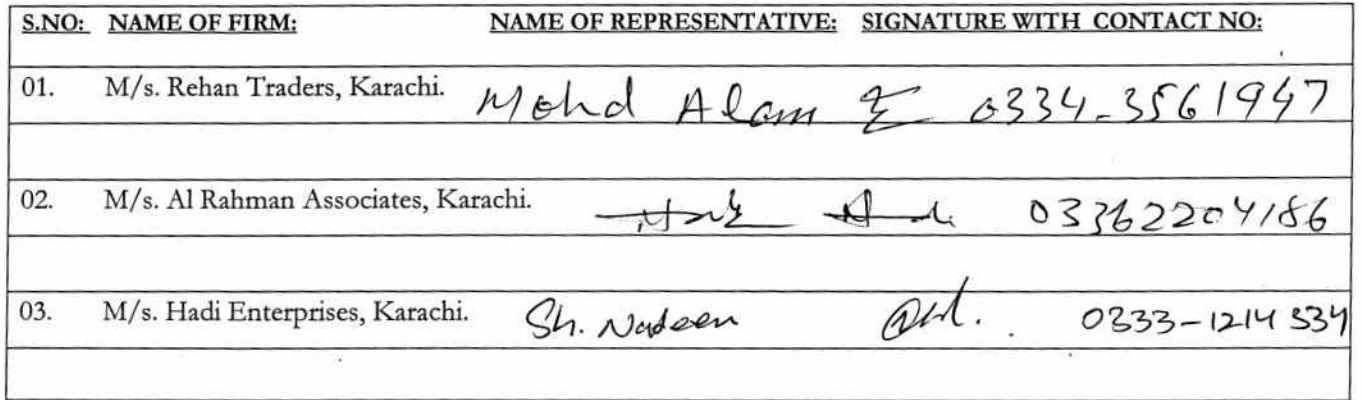 S.NO: NAME OF FIRM: NAME OF REPRESENTATIVE: SIGNATURE WITH CONTACT NO:
01. M/s. Rehan Traders, Karachi. Mohd Alam 0334-3561947
02. M/s. Al Rahman Associates, Karachi. 03362204186
03. M/s. Hadi Enterprises, Karachi. Sh. Nadeem 0333-1214334